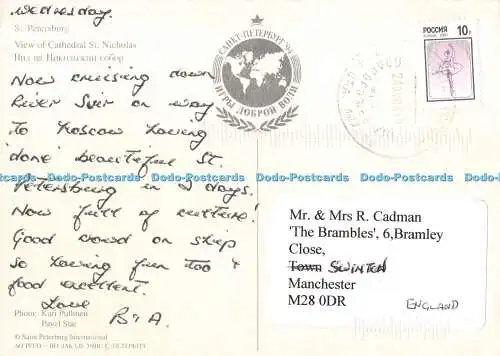 Wednesday.
St. Petersburg
View of Cathedral St. Nicholas
Вид на Никольский собор
Now cruising down
River Svir on way
to Moscow having
'done' beautiful St.
Petersburg in 2 days.
Now full of culture!
Good crowd on ship
so having fun too &
food excellent.
Love
B & A.
Photo: Kari Pullinen
Pavel Star
© Saint Petersburg International
САНКТ-ПЕТЕРБУРГ '94
ИГРЫ ДОБРОЙ ВОЛИ
РОССИЯ
10 р
Dodo-Postcards Dodo-Postcards Dodo-Postcards Dodo-Postcards Dodo-Postcards Dodo-Postcards
Mr. & Mrs R. Cadman
'The Brambles', 6,Bramley
Close,
Town SWINTON
Manchester
M28 0DR
ENGLAND